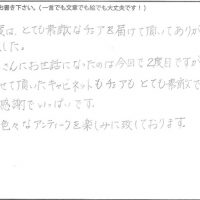 お書き下さい。(一言でも文章でも絵でも大丈夫です!)
度は、とても素敵なチェアを届けて頂いてありが
した。
さんにお世話になったのは今回で2度目ですが
せて頂いたキャビネットもチェアも とても素敵で
感謝でいっぱいです。
色々なアンティークを楽しみに致しております。